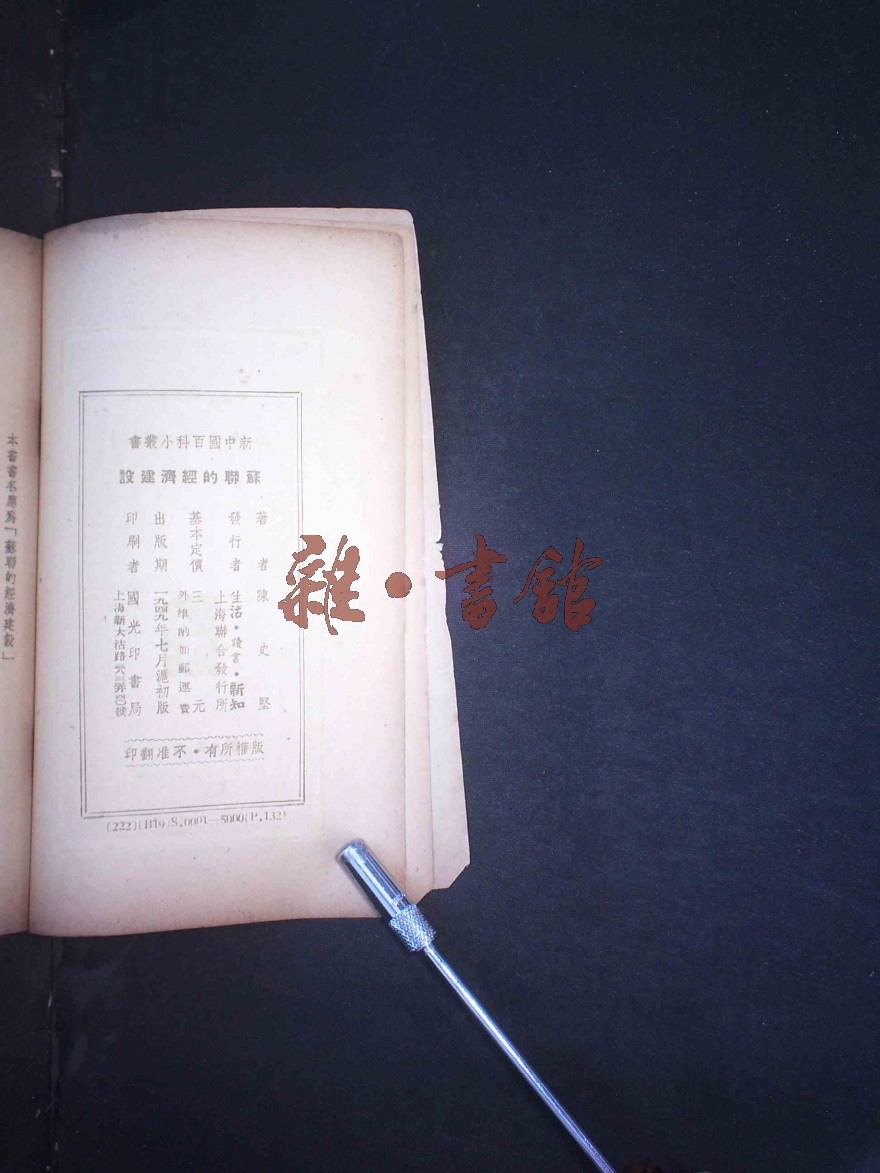 新中國百科小叢書
蘇聯的經濟建設
著者 陳史堅
發行者 生活·讀書·新知
上海聯合發行所
基本定價 三元
外埠酌加郵運費
出版期 一九四九年七月滬初版
印刷者 國光印書局
上海新大沽路
版權所有·不准翻印
(222)(B19)S.0001—5000(P.132)
本書書名應爲「蘇聯的經濟建設」
雜·書館